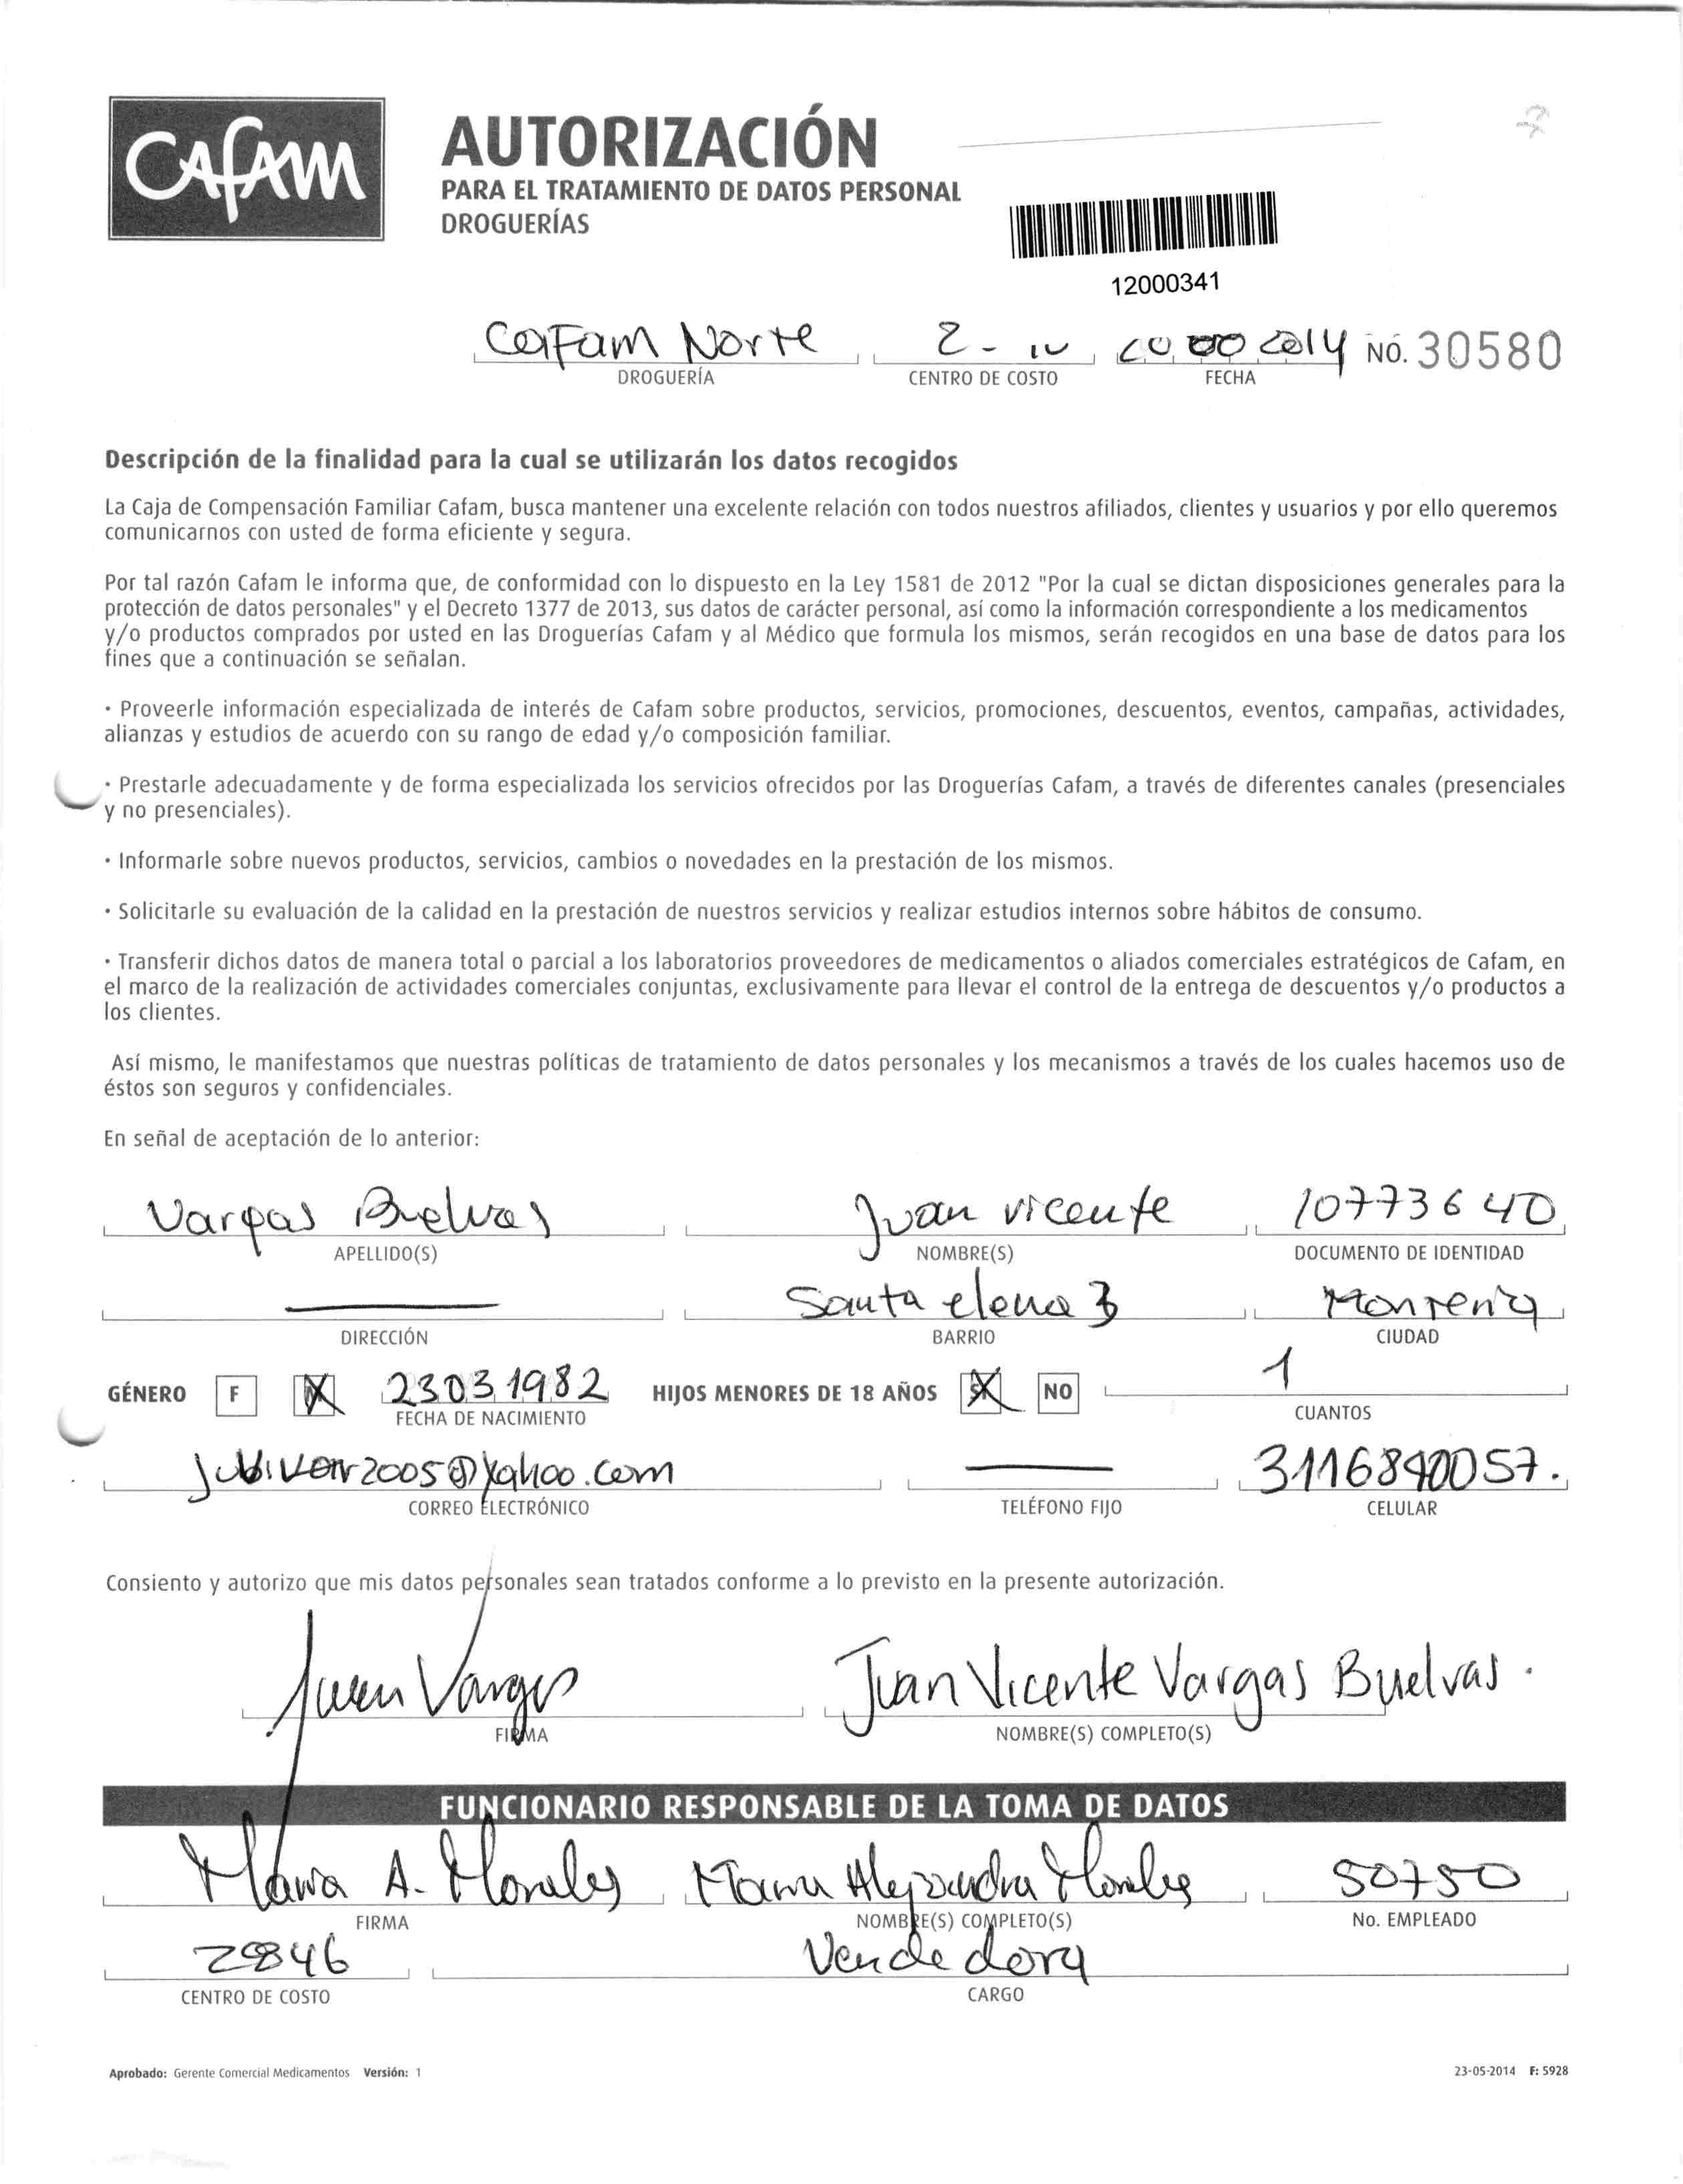 CAFAM
AUTORIZACIÓN
PARA EL TRATAMIENTO DE DATOS PERSONAL
DROGUERÍAS
12000341
Cafam Norte 2- 2014 NO. 30580
DROGUERÍA CENTRO DE COSTO FECHA
Descripción de la finalidad para la cual se utilizarán los datos recogidos
La Caja de Compensación Familiar Cafam, busca mantener una excelente relación con todos nuestros afiliados, clientes y usuarios y por ello queremos
comunicarnos con usted de forma eficiente y segura.
Por tal razón Cafam le informa que, de conformidad con lo dispuesto en la Ley 1581 de 2012 "Por la cual se dictan disposiciones generales para la
protección de datos personales" y el Decreto 1377 de 2013, sus datos de carácter personal, así como la información correspondiente a los medicamentos
y/o productos comprados por usted en las Droguerías Cafam y al Médico que formula los mismos, serán recogidos en una base de datos para los
fines que a continuación se señalan.
· Proveerle información especializada de interés de Cafam sobre productos, servicios, promociones, descuentos, eventos, campañas, actividades,
alianzas y estudios de acuerdo con su rango de edad y/o composición familiar.
· Prestarle adecuadamente y de forma especializada los servicios ofrecidos por las Droguerías Cafam, a través de diferentes canales (presenciales
y no presenciales).
· Informarle sobre nuevos productos, servicios, cambios o novedades en la prestación de los mismos.
· Solicitarle su evaluación de la calidad en la prestación de nuestros servicios y realizar estudios internos sobre hábitos de consumo.
· Transferir dichos datos de manera total o parcial a los laboratorios proveedores de medicamentos o aliados comerciales estratégicos de Cafam, en
el marco de la realización de actividades comerciales conjuntas, exclusivamente para llevar el control de la entrega de descuentos y/o productos a
los clientes.
Así mismo, le manifestamos que nuestras políticas de tratamiento de datos personales y los mecanismos a través de los cuales hacemos uso de
éstos son seguros y confidenciales.
En señal de aceptación de lo anterior:
Vargas Buelvas Juan vicente 10773640
APELLIDO(S) NOMBRE(S) DOCUMENTO DE IDENTIDAD
Santa elena 3 Monteria
DIRECCIÓN BARRIO CIUDAD
GÉNERO F M 23031982 HIJOS MENORES DE 18 AÑOS SI NO 1
FECHA DE NACIMIENTO CUANTOS
3116840057.
CORREO ELECTRÓNICO TELÉFONO FIJO CELULAR
Consiento y autorizo que mis datos personales sean tratados conforme a lo previsto en la presente autorización.
Juan Vargas Juan Vicente Vargas Buelvas.
FIRMA NOMBRE(S) COMPLETO(S)
FUNCIONARIO RESPONSABLE DE LA TOMA DE DATOS
Maria A. Morales Maria Alejandra Morales 50750
FIRMA NOMBRE(S) COMPLETO(S) No. EMPLEADO
29846 Vendedora
CENTRO DE COSTO CARGO
Aprobado: Gerente Comercial Medicamentos Versión: 1 23-05-2014 F: 5928